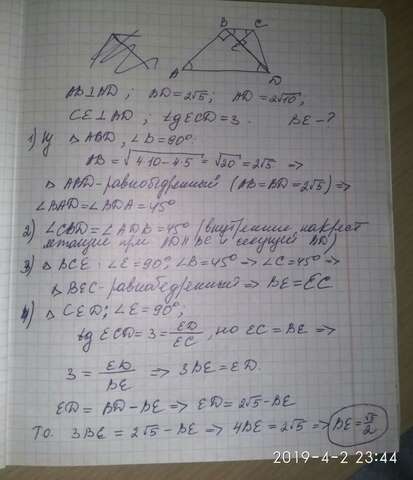 B C
E
A D
AB⊥AD; BD=2√5; AD=2√10;
CE⊥AD; tgECD=3. BE-?
1) Δ ABD, ∠B=90°
AB=√4·10-4·5=√20=2√5 ⇒
Δ ABD-равнобедренный (AB=BD=2√5)⇒
∠BAD=∠BDA=45°
2) ∠CBD=∠ADB=45° (внутренние, накрест
лежащие при AD||BC и секущей BD)
3) Δ BCE: ∠E=90°, ∠B=45° ⇒ ∠C=45° ⇒
Δ BEC-равнобедренный ⇒ BE=EC
4) Δ CED; ∠E=90°;
tg ECD=3=ED/EC, но EC=BE ⇒
3=ED/BE ⇒ 3BE=ED.
ED=BD-BE ⇒ ED=2√5-BE
То. 3BE=2√5-BE ⇒ 4BE=2√5 ⇒ BE=√5/2
2019-4-2 23:44